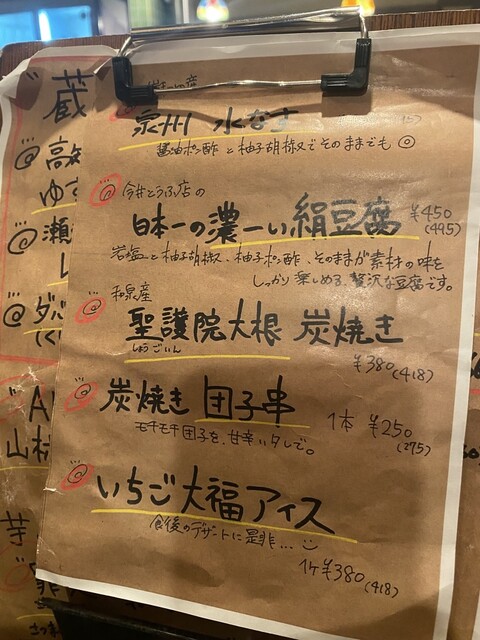 泉州 水なす
醤油ポン酢と柚子胡椒でそのままでも◎
今井とうふ店の
日本一の濃ーい絹豆腐 ¥450
(495)
岩塩と柚子胡椒、柚子ポン酢、そのままが素材の味を
しっかり楽しめる、贅沢な豆腐です。
和泉産
聖護院大根 炭焼き
しょうごいん
¥380(418)
炭焼き 団子串
モチモチ団子を、甘辛いタレで。
1本 ¥250
(275)
いちご大福アイス
食後のデザートに是非…
1ヶ¥380(418)
蔵
ゆず
瀬
山村
芋